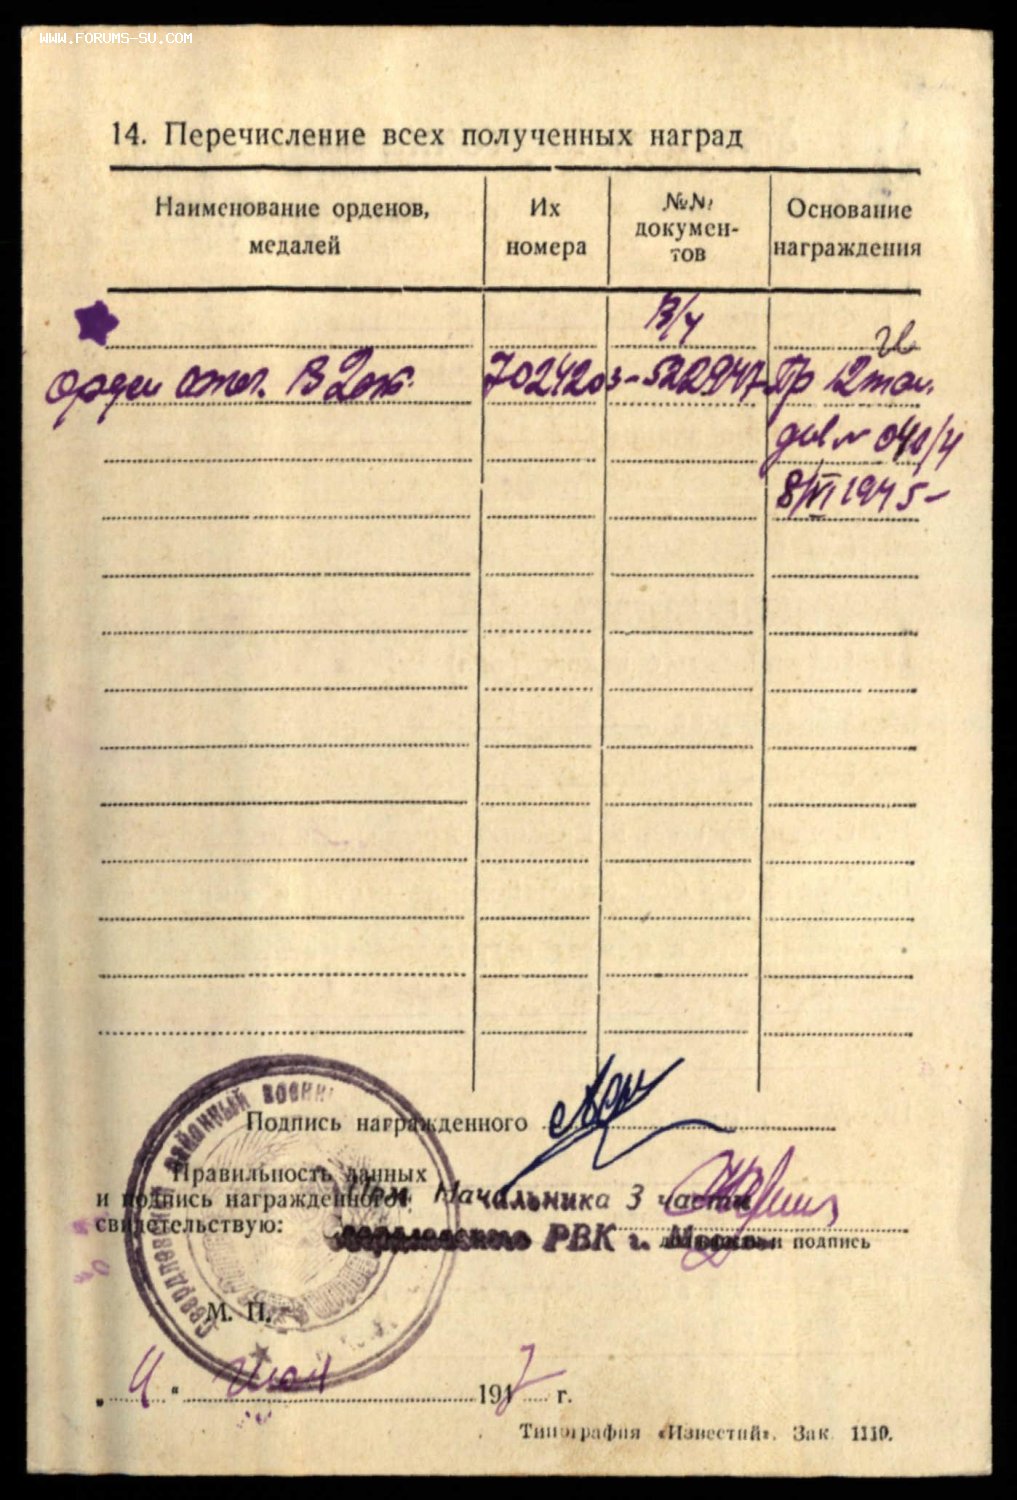 WWW.FORUMS-SU.COM
14. Перечисление всех полученных наград
Наименование орденов, медалей
Их номера
№№ докумен-тов
Основание награждения
В/ч
Орден отеч. В 2 ст.
702420
3-522947
Пр 12
040/ч
8/VI 1945
Подпись награжденного
Правильность данных
и подпись награжденного
свидетельствую:
Начальника 3 части
РВК г.
и подпись
М. П.
Свердловский районный
"4" июл 1947 г.
Типография «Известий». Зак. 1110.